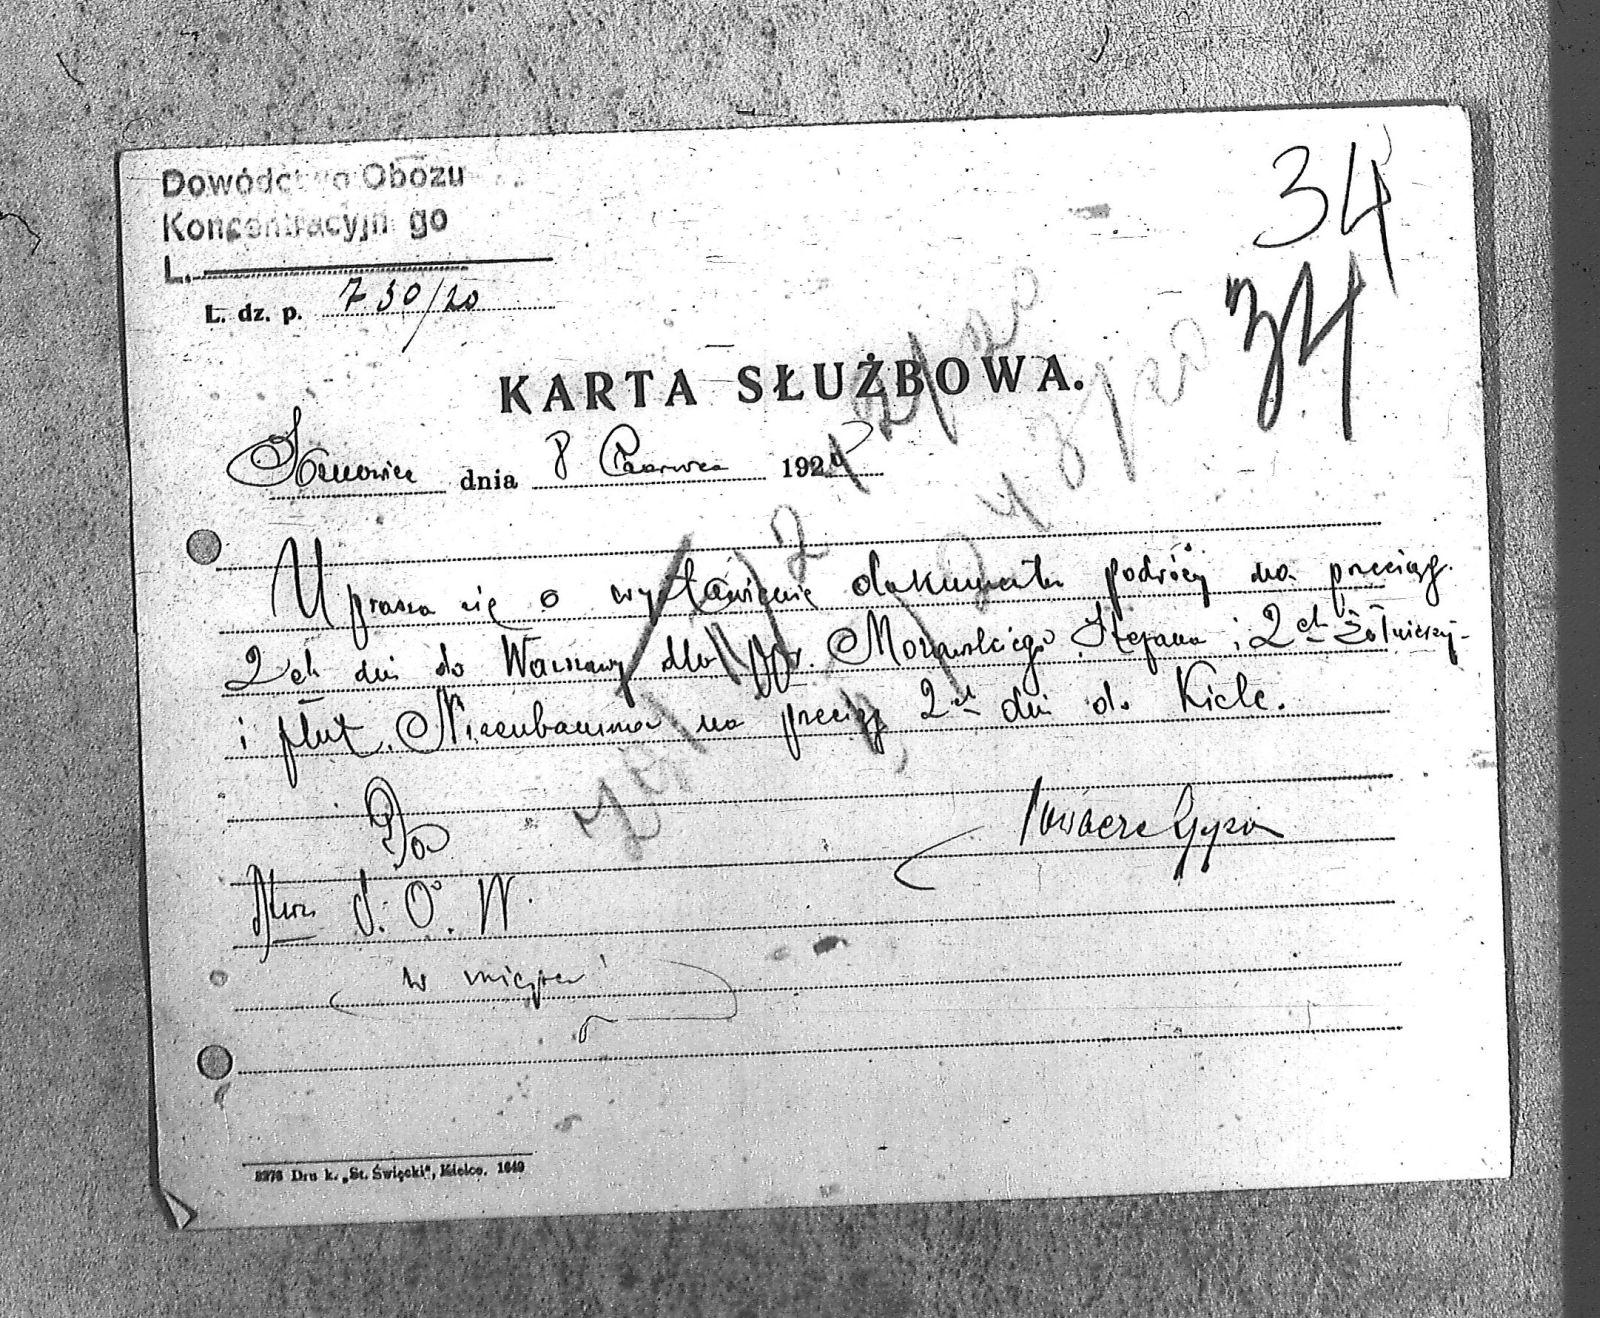 Dowództwo Obozu
Koncentracyjnego
L.
34
34
L. dz. p. 730/20
KARTA SŁUŻBOWA.
dnia 8 Czerwca 192
Uprasza się o wystawienie dokumentu podróży na przeciąg
2ch dni do Warszawy dla ppr. Morawskiego Stefana i 2ch żołnierzy
i plut. Nirenbauma na przeciąg 2ch dni do Kielc.
Do
S. O. W.
w miejscu
8276 Druk. „St. Święcki", Kielce. 1649